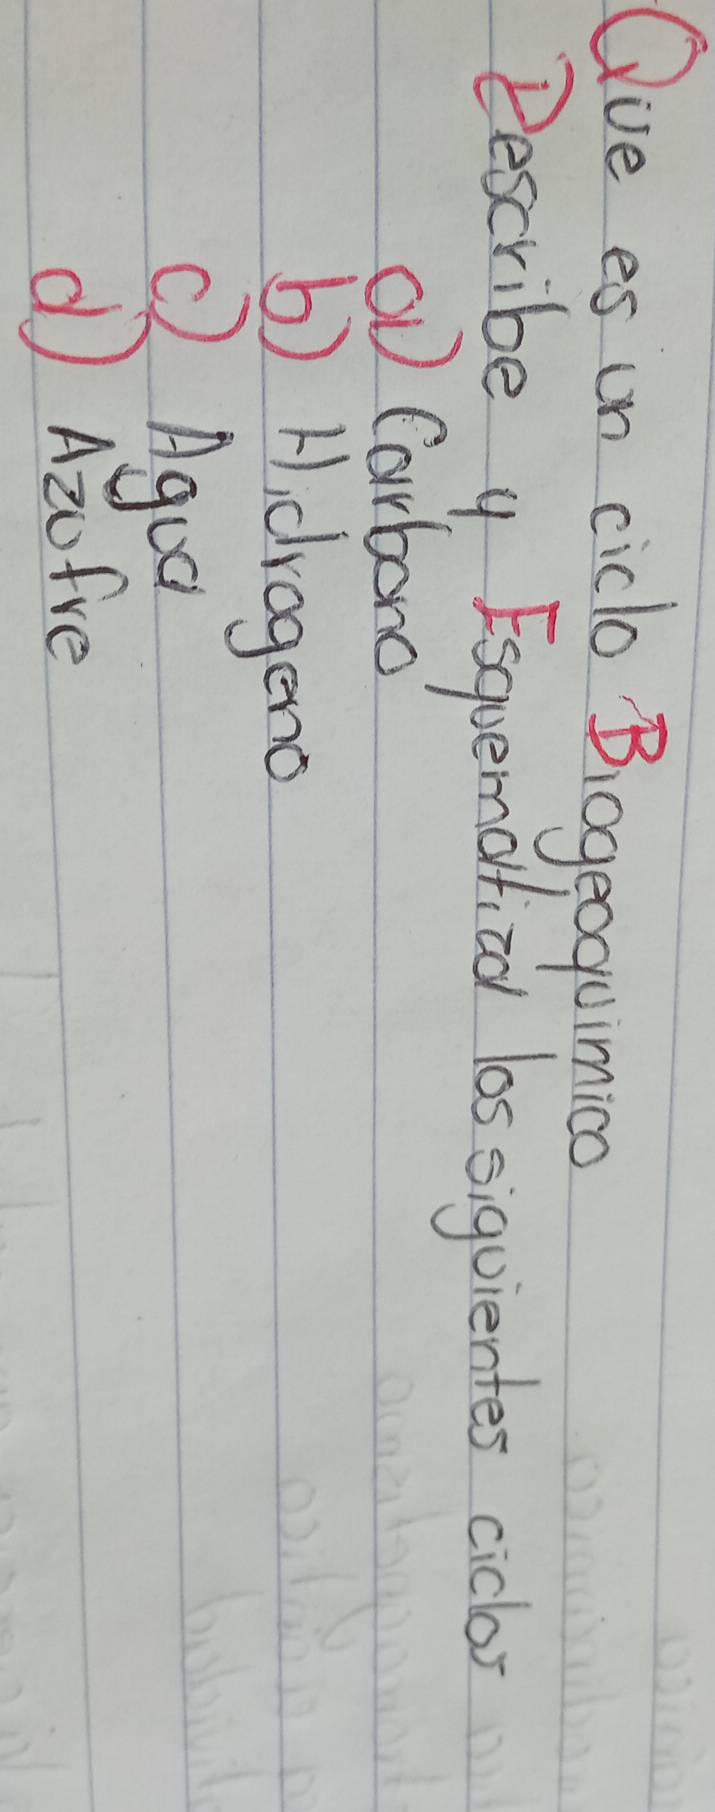 Que es un ciclo Biogeoquimico
Describe y Esquematiza los siguientes ciclos
a) Carbono
b) Hidrogeno
c) Agua
d) Azufre